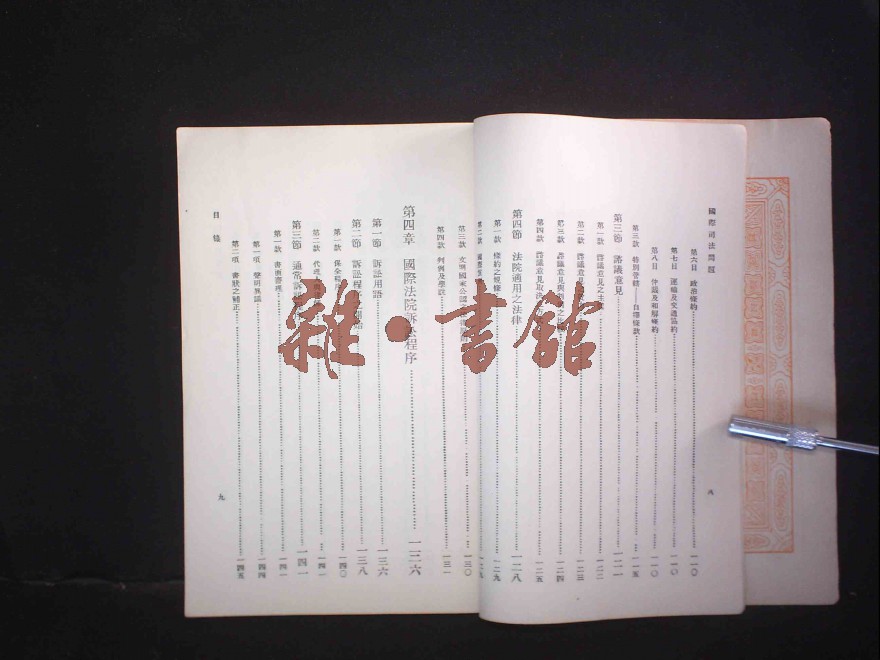 國際司法問題
第六目 政治條約 一一〇
第七目 運輸及交通協約 一一〇
第八目 仲裁及和解條約 一一〇
第三款 特別管轄——自擇條款 一一五
第三節 諮議意見 一二一
第一款 諮議意見之主 一二二
第二款 諮議意見 一二三
第三款 諮議意見與 之 一二四
第四款 諮議意見 一二五
第四節 法院適用之法律 一二八
第一款 條約之規條 一二九
第二款 國際 一二九
八
第三款 文明國家公認 一三〇
第四款 判例及學說 一三一
第四章 國際法院訴訟程序 一三六
第一節 訴訟用語 一三六
第二節 訴訟程序之 一三八
第一款 保全 一四〇
第二款 代理 一四一
第三節 通常訴訟 一四一
第一款 書面審理 一四一
第一項 聲明異議 一四四
第二項 書狀之補正 一四五
目錄
九
雜·書館